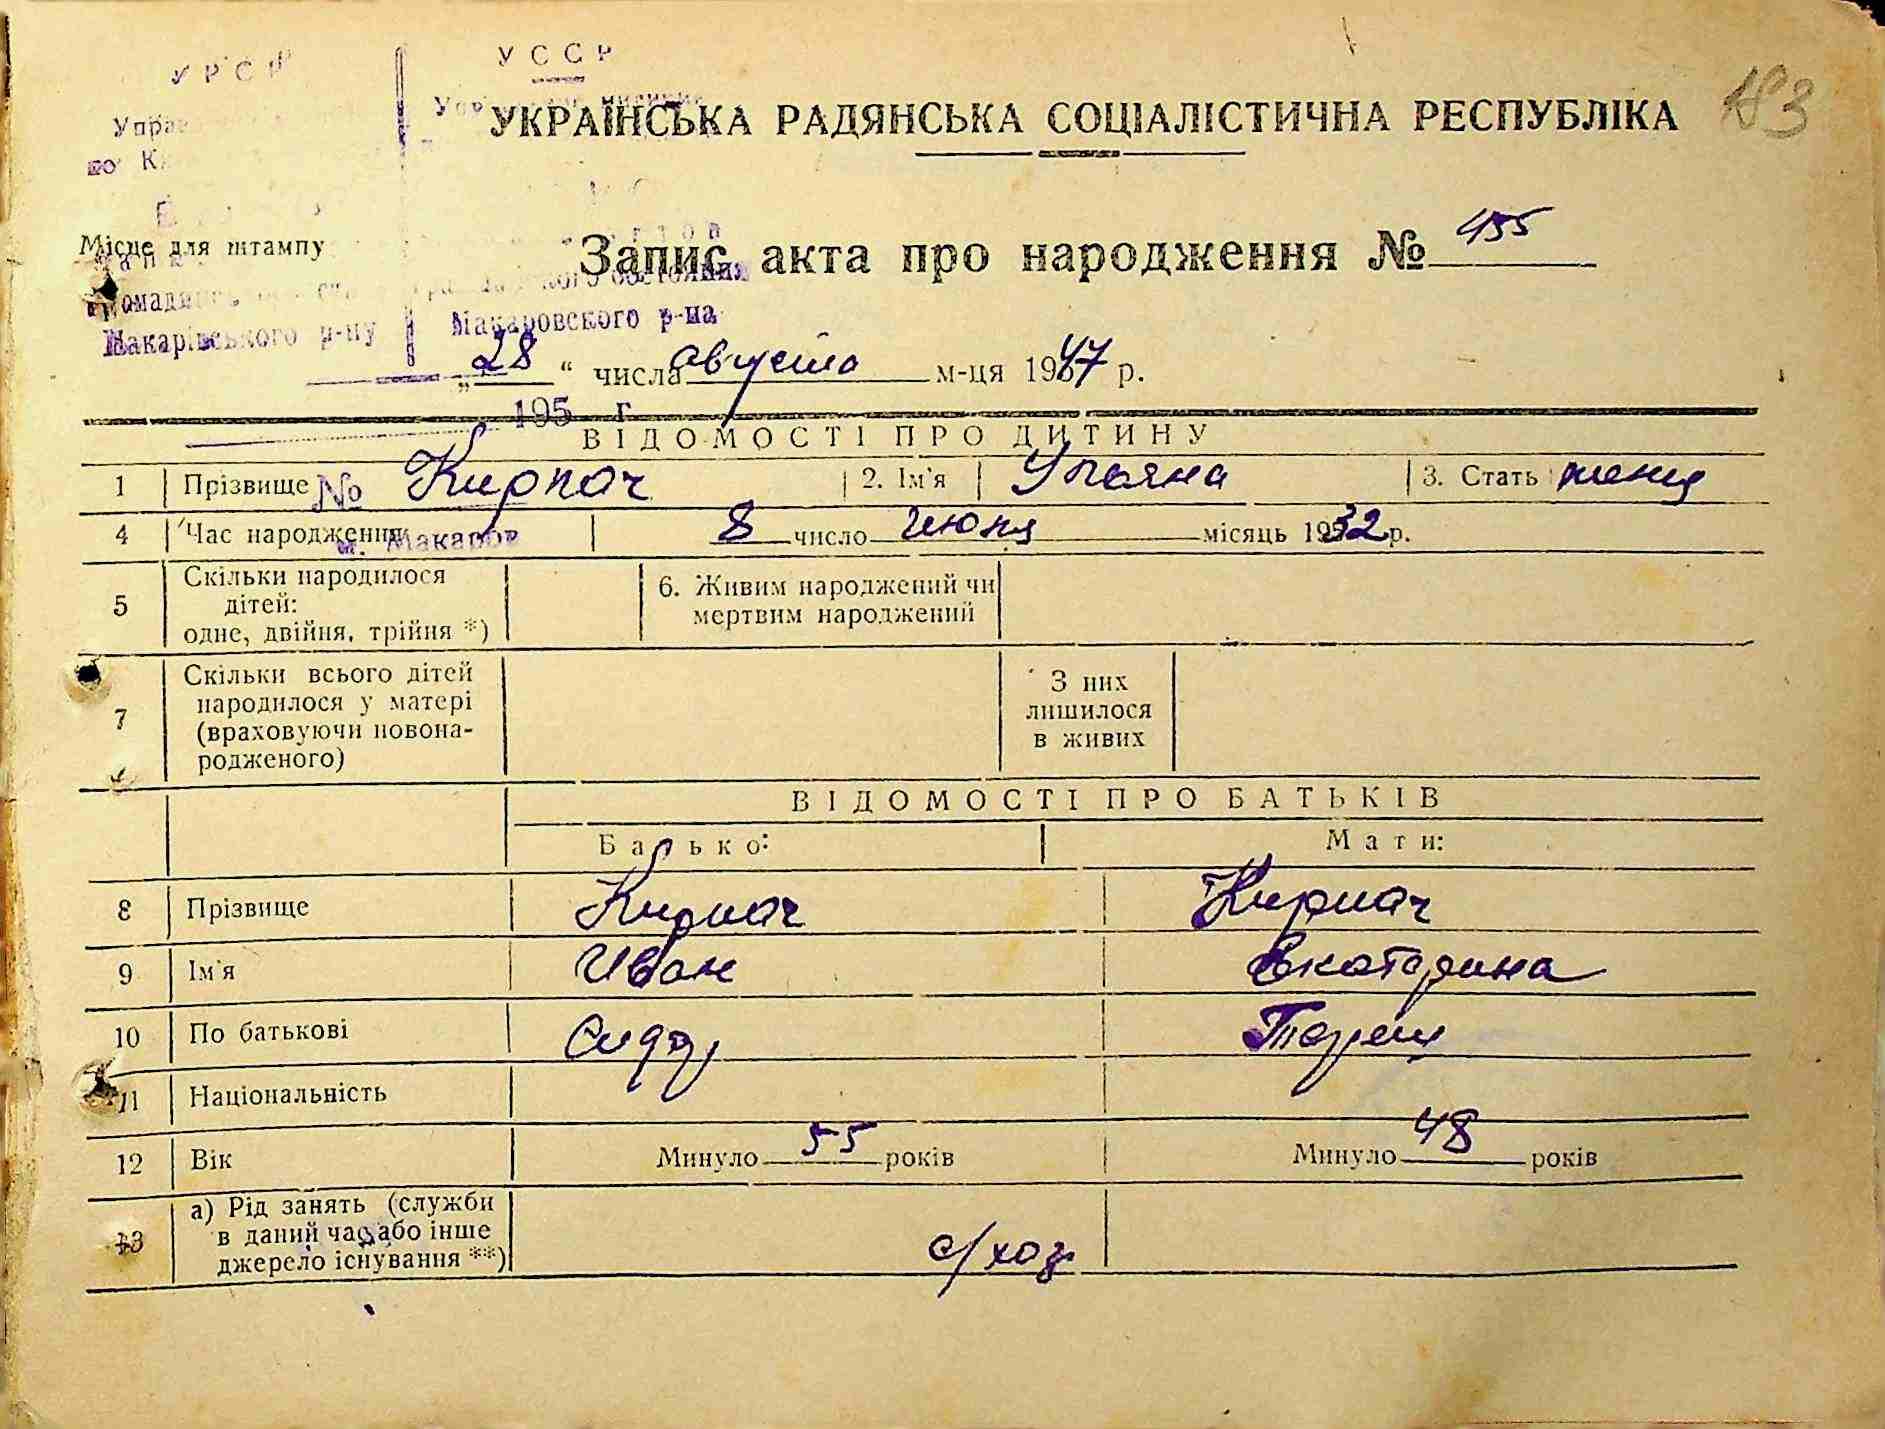 У Р С Р
У С С Р
183
УКРАЇНСЬКА РАДЯНСЬКА СОЦІАЛІСТИЧНА РЕСПУБЛІКА
по
Місце для штампу
Запис акта про народження № 455
Макарівського р-ну
Макаровского р-на
„28“ числа августа м-ця 1947 р.
195 г
ВІДОМОСТІ ПРО ДИТИНУ
1 Прізвище № Кирпач 2. Ім'я Ульяна 3. Стать женщ
4 Час народження м. Макаров 8 число июня місяць 1932 р.
5 Скільки народилося дітей: одне, двійня, трійня *) 6. Живим народжений чи мертвим народжений
7 Скільки всього дітей народилося у матері (враховуючи новонародженого) З них лишилося в живих
ВІДОМОСТІ ПРО БАТЬКІВ
Батько: Мати:
8 Прізвище Кирпач Кирпач
9 Ім'я Иван Екатерина
10 По батькові
11 Національність
12 Вік Минуло 55 років Минуло 48 років
13 а) Рід занять (служби в даний час або інше джерело існування **) с/хоз